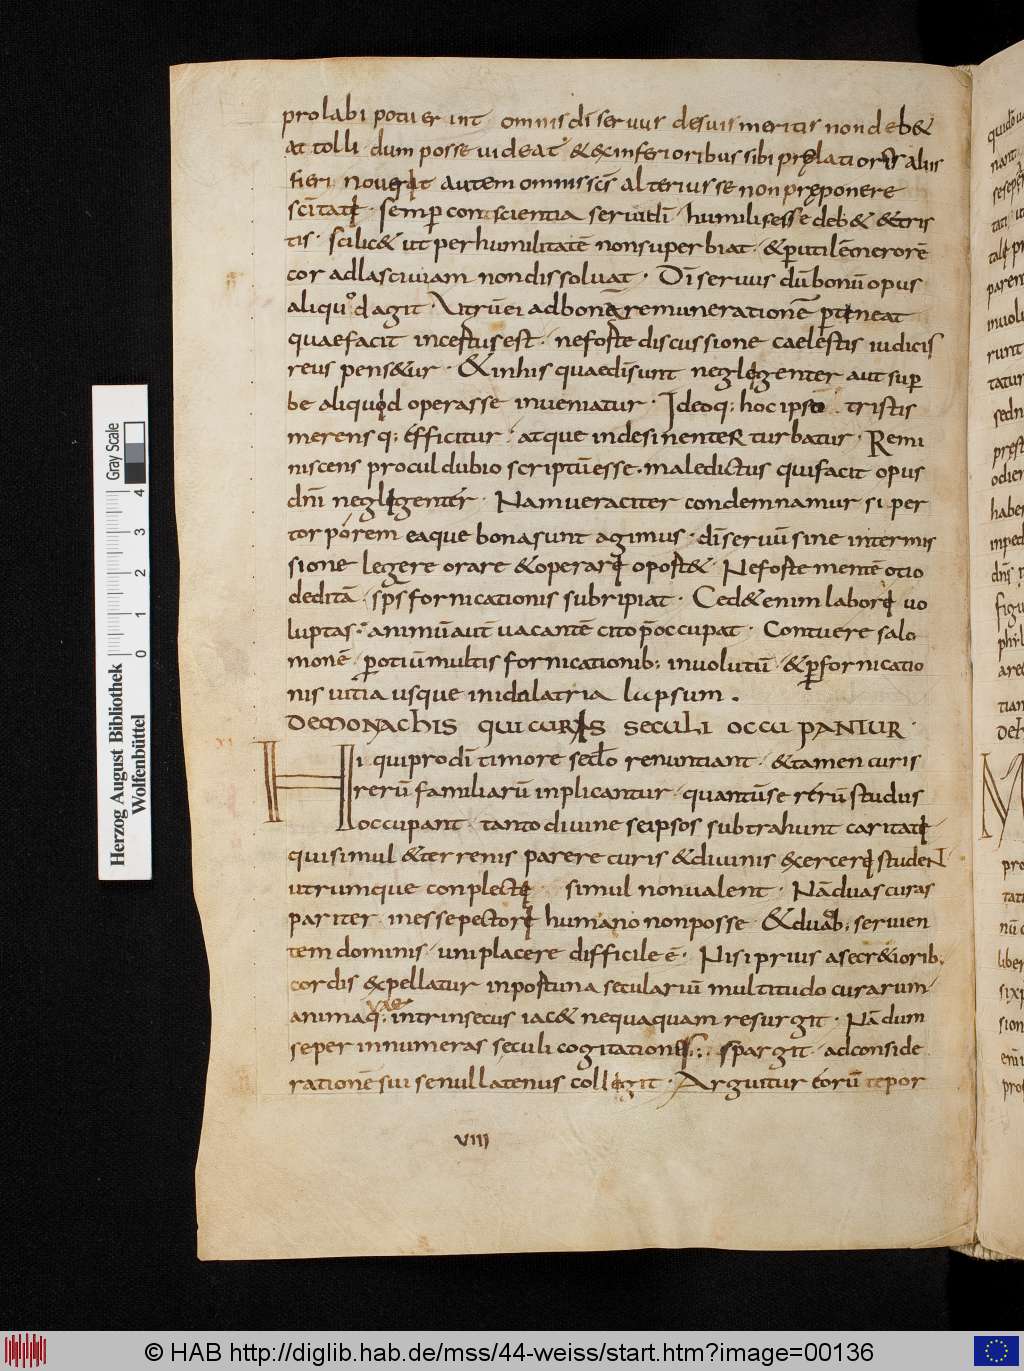 prolabi potuerint omnis dī seruus desuis meritis non deb&
at tolli dum posse uideat &exinferioribus sibi pręlatiores alius
fieri nouerit autem omnis scs̄ alterius se non pręponere
Semp̱ conscientia serui dī humilis esse deb& &tris
tis · scilic& ut per humilitatē non superbiat ·
cor ad lasciuiam non dissoluat · Dī seruus dū bonū opus
aliquod agit · Vtrū ei ad bonā remunerationē ꝑtineat
quae facit incertus est · ne forte discussione caelestis iudicis
reus pens&ur · &in his quae dī sunt neglegenter aut sup
be aliquid operasse inueniatur · Ideoq; hoc ipso tristis
merens q; efficitur · atque indesinenter turbatur · Remi
niscens procul dubio scriptū esse · maledictus qui facit opus
dnī neglegenter · Nam ueraciter condemnamur si per
torporem eaque bona sunt agimus · dī seruū sine intermis
sione legere orare &operare oport& · Ne forte mentē otio
deditā · sps̄ fornicationis subripiat · Ced& enim labori uo
luptas · animū aut̄ uacantē cito p̄occupat · Contuere salo
monē ꝑ otiū multis fornicationib; inuolutū · &ꝑ fornicatio
nis uitia usque in idolatria lapsum .
DE MONACHIS QUI CURIS SECULI OCCUPANTUR ·
Hi qui pro dī timore sec̄lo renuntiant · &tamen curis
rerū familiarū inplicantur · quantū se rerū studiis
occupant · tanto diuine seipsos subtrahunt caritate
qui simul &terrenis parere curis &diuinis exercere student
utrumque conplecte simul non ualent · Nā duas curas
pariter messe pectore humano non posse · &duab; seruien
tem dominis · uni placere difficile ē · Nisi prius a secr&iorib;
cordis expellatur inportuna seculariū multitudo curarum
animaq; quae intrinsecus iac& nequaquam resurgit · Nā dum
se per innumeras seculi cogitationes spargit · ad conside
rationē sui se nullatenus collegit · Arguitur eorū tepor
VIII
Gray Scale
4
3
2
1
0
Herzog August Bibliothek
Wolfenbüttel
© HAB http://diglib.hab.de/mss/44-weiss/start.htm?image=00136